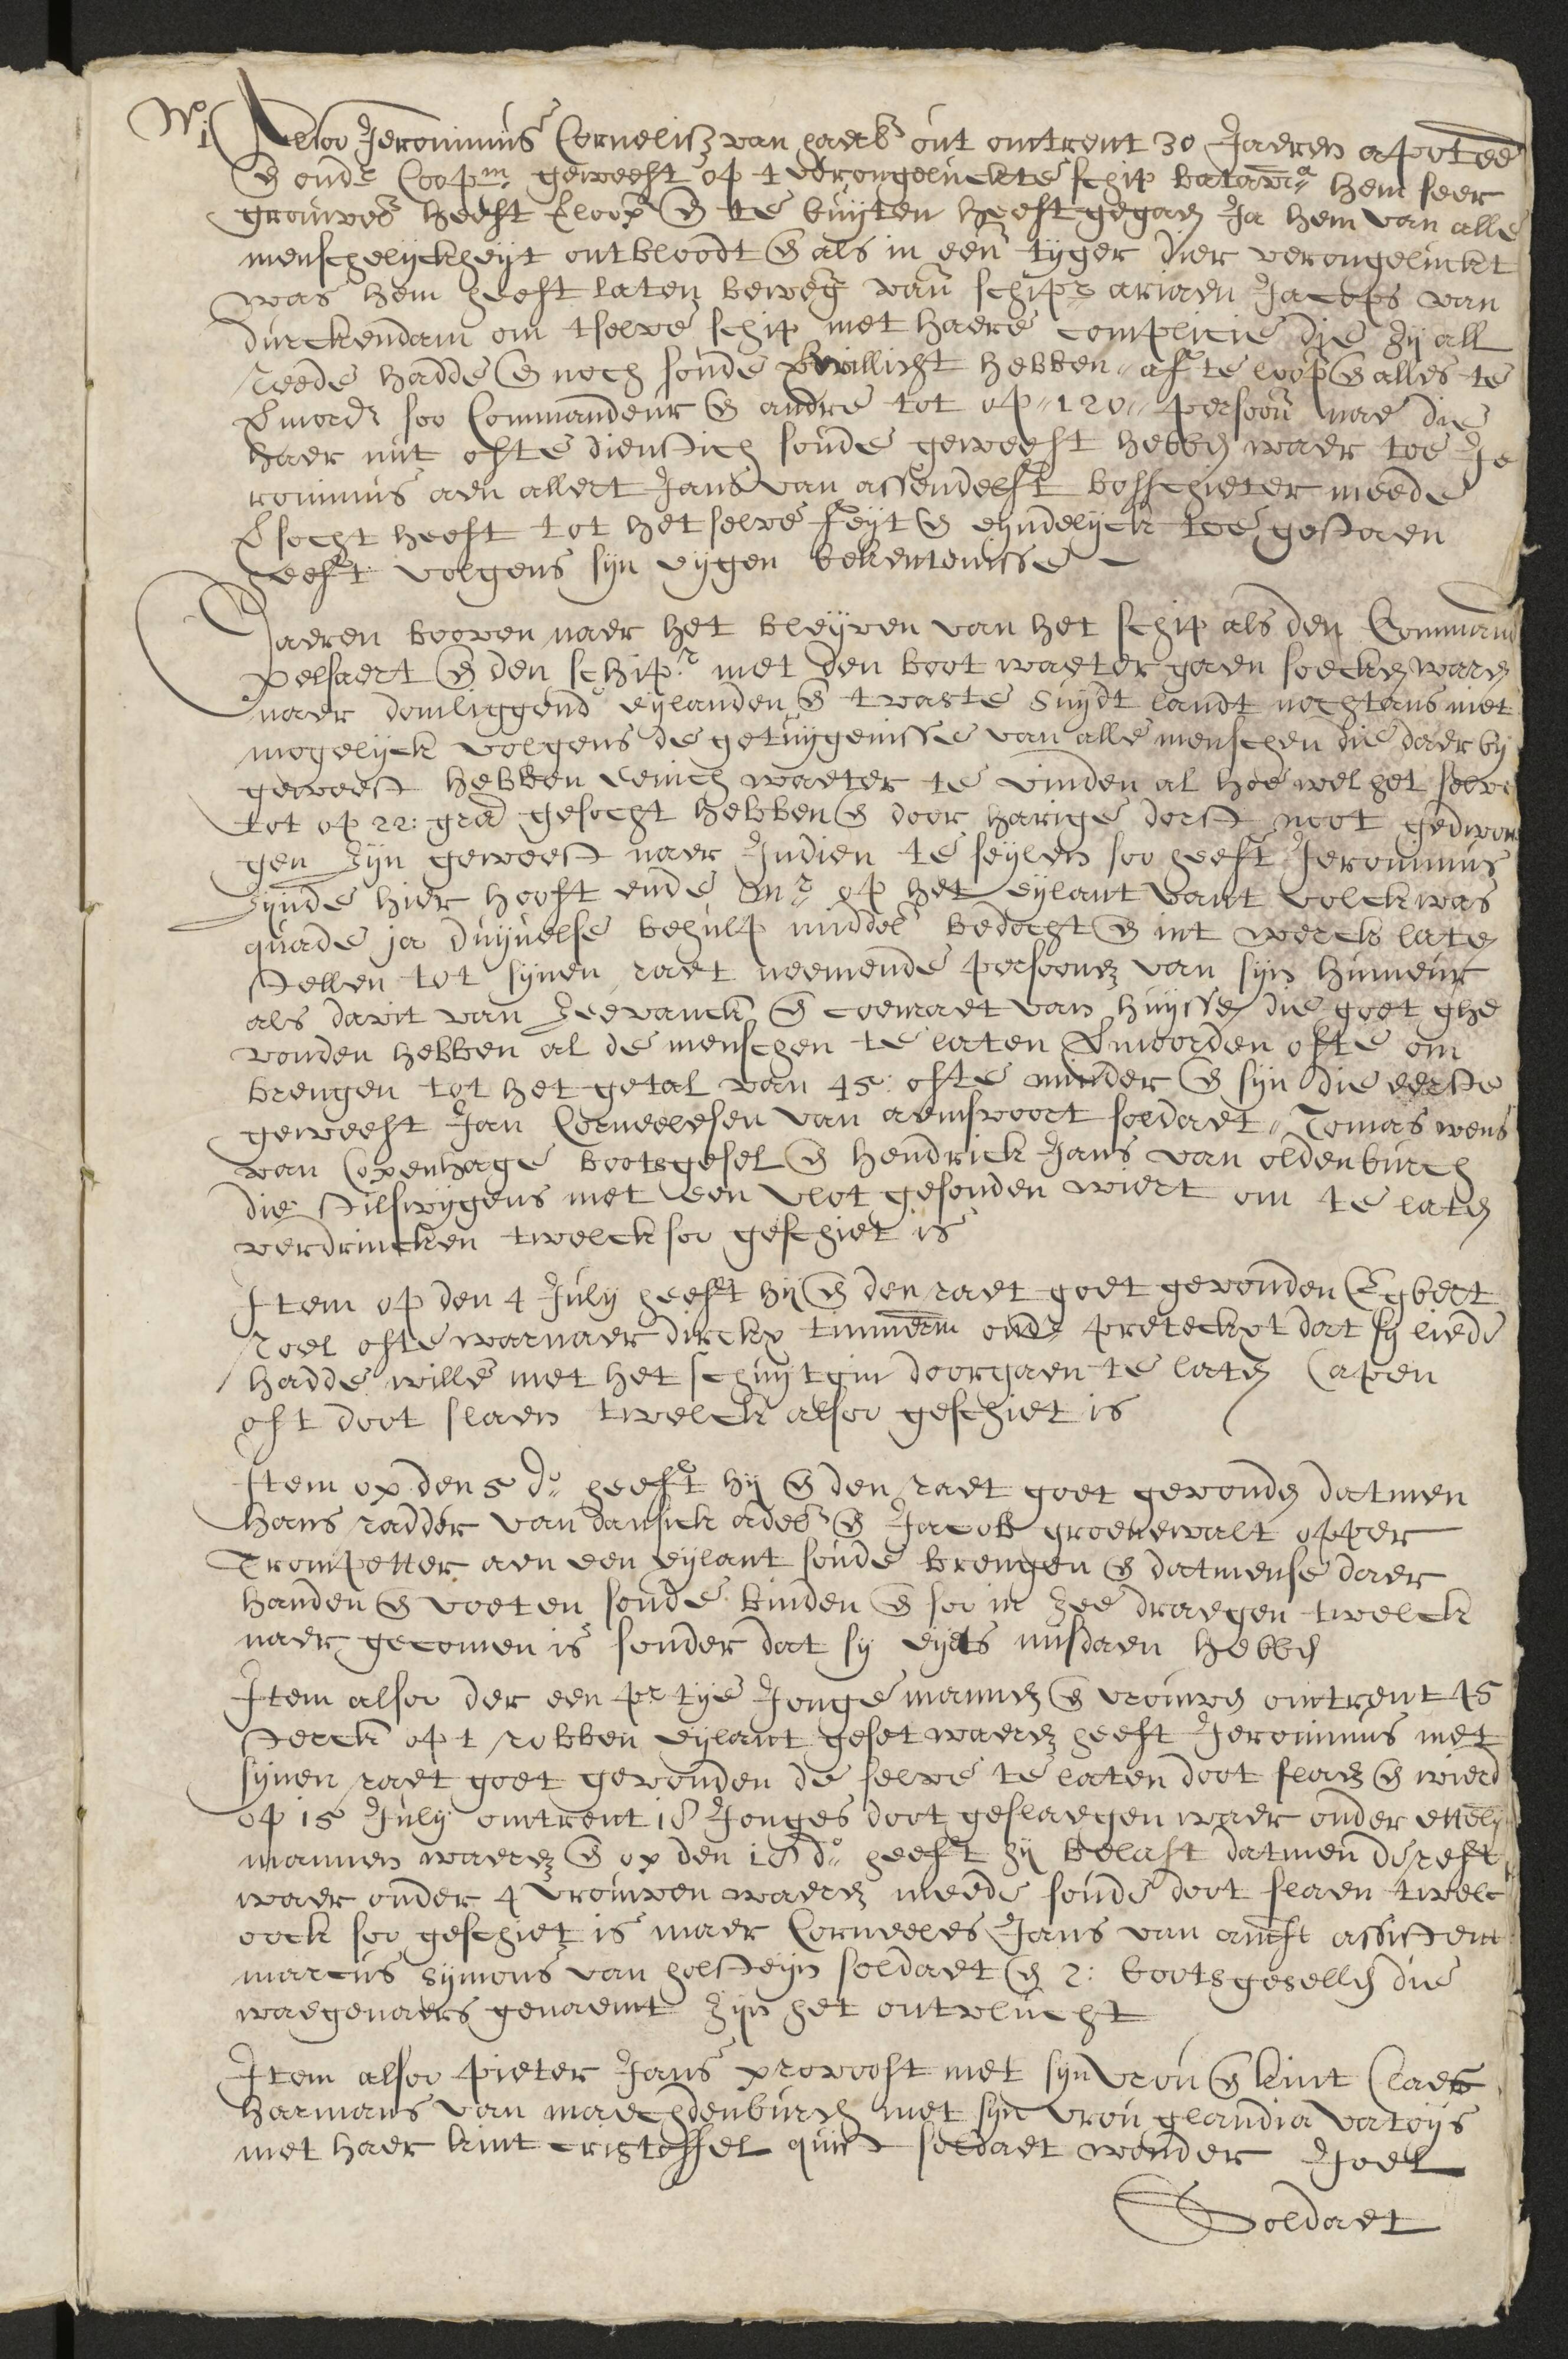 No 1 Alsoo Jeronimus Cornelisz van haerl out omtrent 30 Jaeren apoteecker
en onder Coopm geweest op t verongeluckte schip batavia hem seer
grouwel heeft verloop en te buyten heeft gegaen Ja hem van alle
menschelyckheyt ontbloodt en als in een tyger dier verongeluckt
was hem heeft laten beweg van schipr ariaen Jacops van
durckendam om tselve schip met haere complicie die zij all
reede hadde en noch soude bewillicht hebben aff te loop en alles te
vermord soo Commandeur en andre tot op 120 persoon nae die
haer nut ofte dienstich soude geweest hebben waer toe Je
ronimus aen allert Jans van assendelft bosschieter meede
versocht heeft tot het selve feyt en eyndelyck toe gestaen
heeft volgens syn eygen bekentenisse

Daeren booven naer het bleyven van het schip als den Command
pelsaert en den schipr met den boot waeter gaen soecken waren
naer domliggend eylanden en t vaste Suydt landt nochtans niet
mogelyck volgens de getuygenisse van alle menschen die daer by
geweest hebben eenich waeter te vinden al hoe wel het selve
tot op 22: grad gesocht hebben en door harige dorst noot gedwon
gen zyn geweest naer Indien te seylen soo heeft Jeronimus
zynde hier hooft ende mr op het eylant vant volck was
quade ja duyvelse behulp middel bedocht en int werck laten
stellen tot synen raet neemende persoonen van syn humeur
als davit van Zeevanck en coenraet van huyssen die goet ghe
vonden hebben al de menschen te laten vermoorden ofte om
brengen tot het getal van 45: ofte minder en syn die eerste
geweest Jan Corneelesen van aemsvoort soldaet Tomas wens
van Copenhage bootsgesel en Hendrick Jans van oldenburch
die stilswygens met een vlot gesonden wiert om te laten
verdrincken twelck soo geschiet is

Item op den 4 July heeft hij en den raet goet gevonden Egbert
roel ofte warnaer dirckx timmerm onder preteckxt dat sy liede
hadde wille met het schuytgin doorgaen te laten Capen
oft doot slaen twelck alsoo geschiet is

Item op den 5 do heeft hij en den raet goet gevonden datmen
Hans radder van dansick adelb en Jacob groenewalt opper
Trompetter aen een eylant soude brengen en datmense daer
handen en voeten soude binden en soo in zee draegen twelck
naer gecomen is sonder dat sy eyets misdaen hebben

Item alsoo der een pertye Jonge mannen en vrouwen omtrent 45
sterck op t robben eylant geset waeren heeft Jeronimus met
synen raet goet gevonden de selve te laten doot slaen en wierd
op 15 July omtrent 18 Jonges doot geslaegen waer onder ettely
mannen waeren en op den 18 do heeft hij belast datmen de rest
waer onder 4 vrouwen waeren meede soude doot slaen twelc
oock soo geschiet is maer Corneeles Jans van amst assistent
marcus symons van holsteyn soldaet en 2: bootsgesellen die
waegenaers genaemt zyn het ontvlucht

Item alsoo pieter Jans provoost met syn vrou en kint Claes
Harmans van maechdenburch met syn vrou glaudia vatoys
met haer kint cristoffel quist soldaet wouder Joel
Soldaet